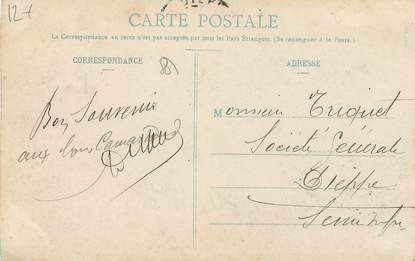 12+
DIEPPE
CARTE POSTALE
La Correspondance au verso n'est pas acceptée par tous les Pays Étrangers. (Se renseigner à la Poste.)
CORRESPONDANCE
Bon Souvenir
aux bons
ADRESSE
Monsieur Triquet
Société Générale
Dieppe
Seine Infre